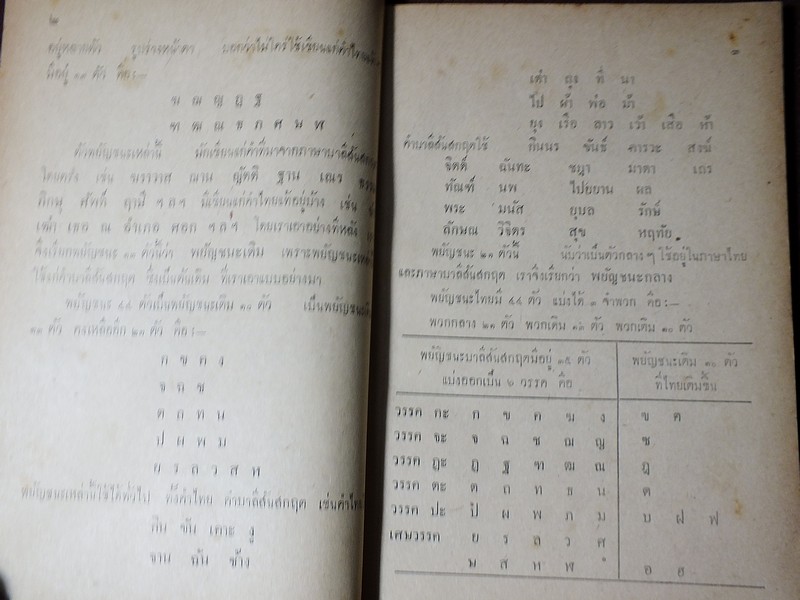 ๒
มีอยู่ ๑๓ ตัว คือ:—
ฆ ฌ ญ ฎ ฐ
ฑ ฒ ณ ธ ภ ศ ษ ฬ
ตัวพยัญชนะเหล่านี้ มักเขียนแต่คำที่มาจากภาษาบาลีสันสกฤต
เช่น ฆราวาส ฌาน ญัตติ ฐาน เณร
ภิกษุ ศัพท์ ฤาษี ฯลฯ มีเขียนแต่คำไทยแท้อยู่บ้าง เช่น
เฒ่า เธอ ณ อำเภอ ศอก ฯลฯ โดยเราเอาอย่างทีหลัง
จึงเรียกพยัญชนะ ๑๓ ตัวนี้ว่า พยัญชนะเดิม เพราะพยัญชนะ
ใช้แต่คำบาลีสันสกฤต ซึ่งเป็นต้นเดิม ที่เราเอาแบบอย่างมา
พยัญชนะ ๔๔ ตัวเป็นพยัญชนะเติม ๑๐ ตัว เป็นพยัญชนะเดิม
๑๓ ตัว คงเหลืออีก ๒๑ ตัว คือ:—
ก ข ค ง
จ ฉ ช
ต ถ ท น
ป ผ พ ม
ย ร ล ว ส ห
พยัญชนะเหล่านี้ใช้ได้ทั่วไป ทั้งคำไทย คำบาลีสันสกฤต เช่นคำไทย
กิน ขัน เคาะ งู
จาน ฉัน ช้าง
๓
เต่า ถุง ที่ นา
ไป ผ้า พ่อ ม้า
ยุง เรือ ลาว เว้า เสือ ห้า
คำบาลีสันสกฤตใช้ กินนร ขันธ์ คารวะ สงฆ์
จิตต์ ฉันทะ ชฎา มาตา เถร
ทัณฑ์ นพ ไปยยาน ผล
พระ มนัส ยุบล รักษ์
ลักษณ วิจิตร สุข หฤทัย
พยัญชนะ ๒๑ ตัวนี้ นับว่าเป็นตัวกลาง ๆ ใช้อยู่ในภาษาไทย
และภาษาบาลีสันสกฤต เราจึงเรียกว่า พยัญชนะกลาง
พยัญชนะไทยมี ๔๔ ตัว แบ่งได้ ๓ จำพวก คือ:—
พวกกลาง ๒๑ ตัว พวกเดิม ๑๓ ตัว พวกเติม ๑๐ ตัว
พยัญชนะบาลีสันสกฤตมีอยู่ ๓๕ ตัว
แบ่งออกเป็น ๖ วรรค คือ
พยัญชนะเติม ๑๐ ตัว
ที่ไทยเติมขึ้น
วรรค กะ ก ข ค ฆ ง ฃ ฅ
วรรค จะ จ ฉ ช ฌ ญ ซ
วรรค ฏะ ฏ ฐ ฑ ฒ ณ ฎ
วรรค ตะ ต ถ ท ธ น ด
วรรค ปะ ป ผ พ ภ ม บ ฝ ฟ
เศษวรรค ย ร ล ว ศ
ษ ส ห ฬ ํ อ ฮ